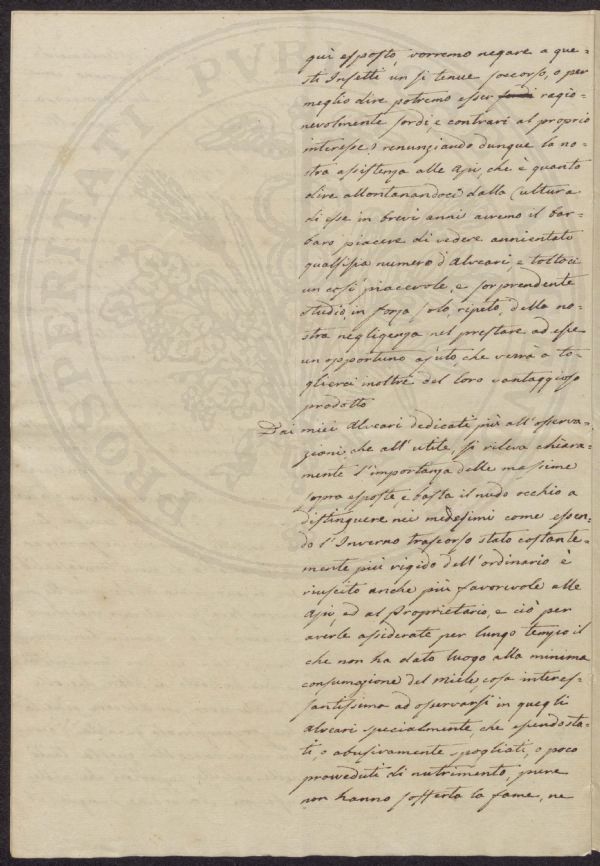 qui esposto, vorremo negare a que=
sti Insetti un sì tenue soccorso, o per
meglio dire potremo esser sordi ragio=
nevolmente sordi, e contrari al proprio
interesse? renunziando dunque la no=
stra assistenza alle Api, che è quanto
dire allontanandoci dalla Cultura
di esse in brevi anni avremo il bar=
baro piacere di vedere annientato
qualsisia numero d'Alveari, e toltoci
un così piacevole, e sorprendente
studio, in forza solo, ripeto, della no=
stra negligenza nel prestare ad esse
un opportuno ajuto, che verrà a to=
glierci inoltre del loro vantaggioso
prodotto
Dai miei Alveari dedicati più all'osserva=
zioni, che all'utile, si rileva chiara=
mente l'importanza delle massime
sopra esposte, e basta il nudo occhio a
distinguere nei medesimi come essen=
do l'Inverno trascorso stato costante=
mente più rigido dell'ordinario è
riuscito anche più favorevole alle
Api, ed al Proprietario, e ciò per
averle assiderate per lungo tempo il
che non ha dato luogo alla minima
consumazione del miele, cosa interes=
santissima ad osservarsi in quegli
alveari specialmente, che essendo sta=
ti, o abusivamente spogliati, o poco
proveduti di nutrimento, pure
non hanno sofferta la fame, ne
PROSPERITATI PVB